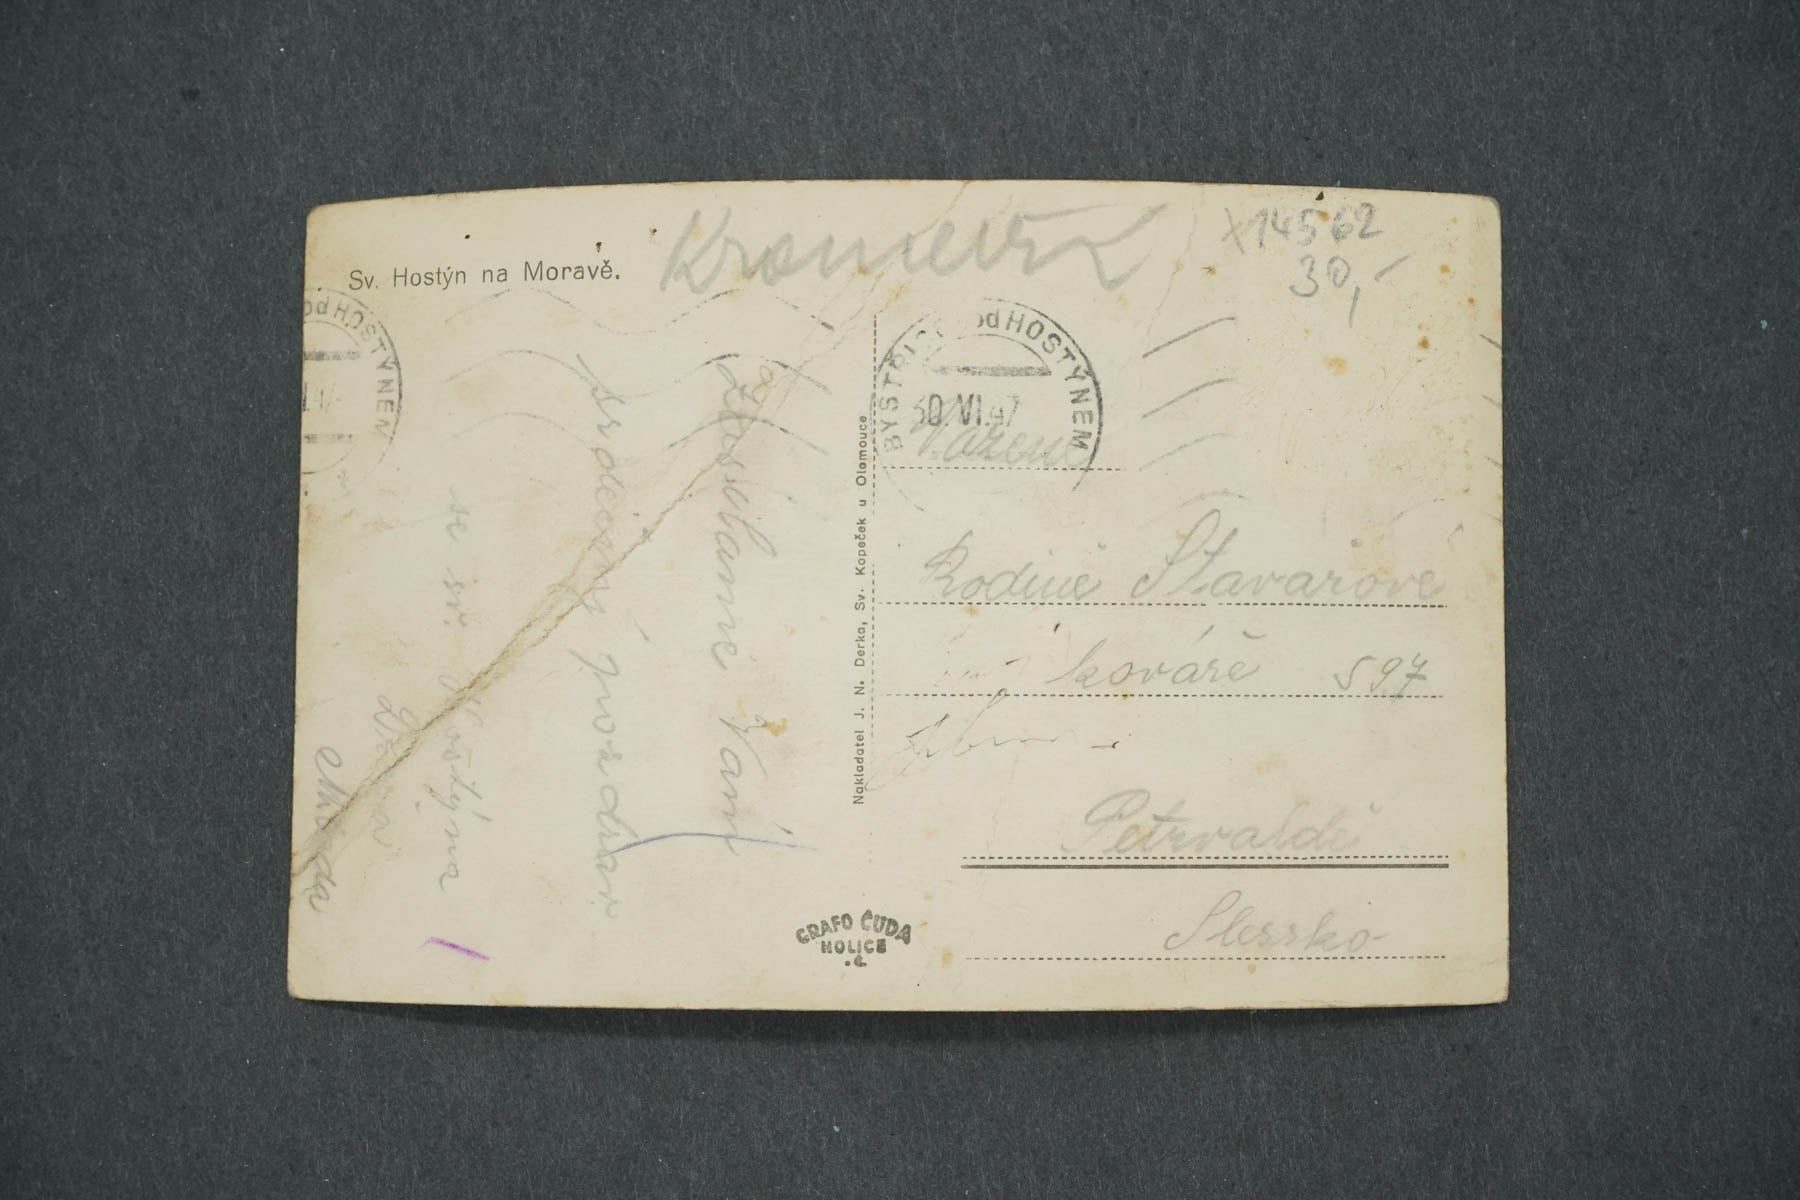 Sv. Hostýn na Moravě.
x14562
30,-
od HOSTÝNEM
BYSTŘICE pod HOSTÝNEM
30.VI.47
Zasíláme Vám
srdečný pozdrav
se sv. Hostýna
Nakladatel J. N. Derka, Sv. Kopeček u Olomouce
Vážené
Rodině Stavařově
kováře 597
Petrvaldě
Slessko-
GRAFO ČUDA
HOLICE